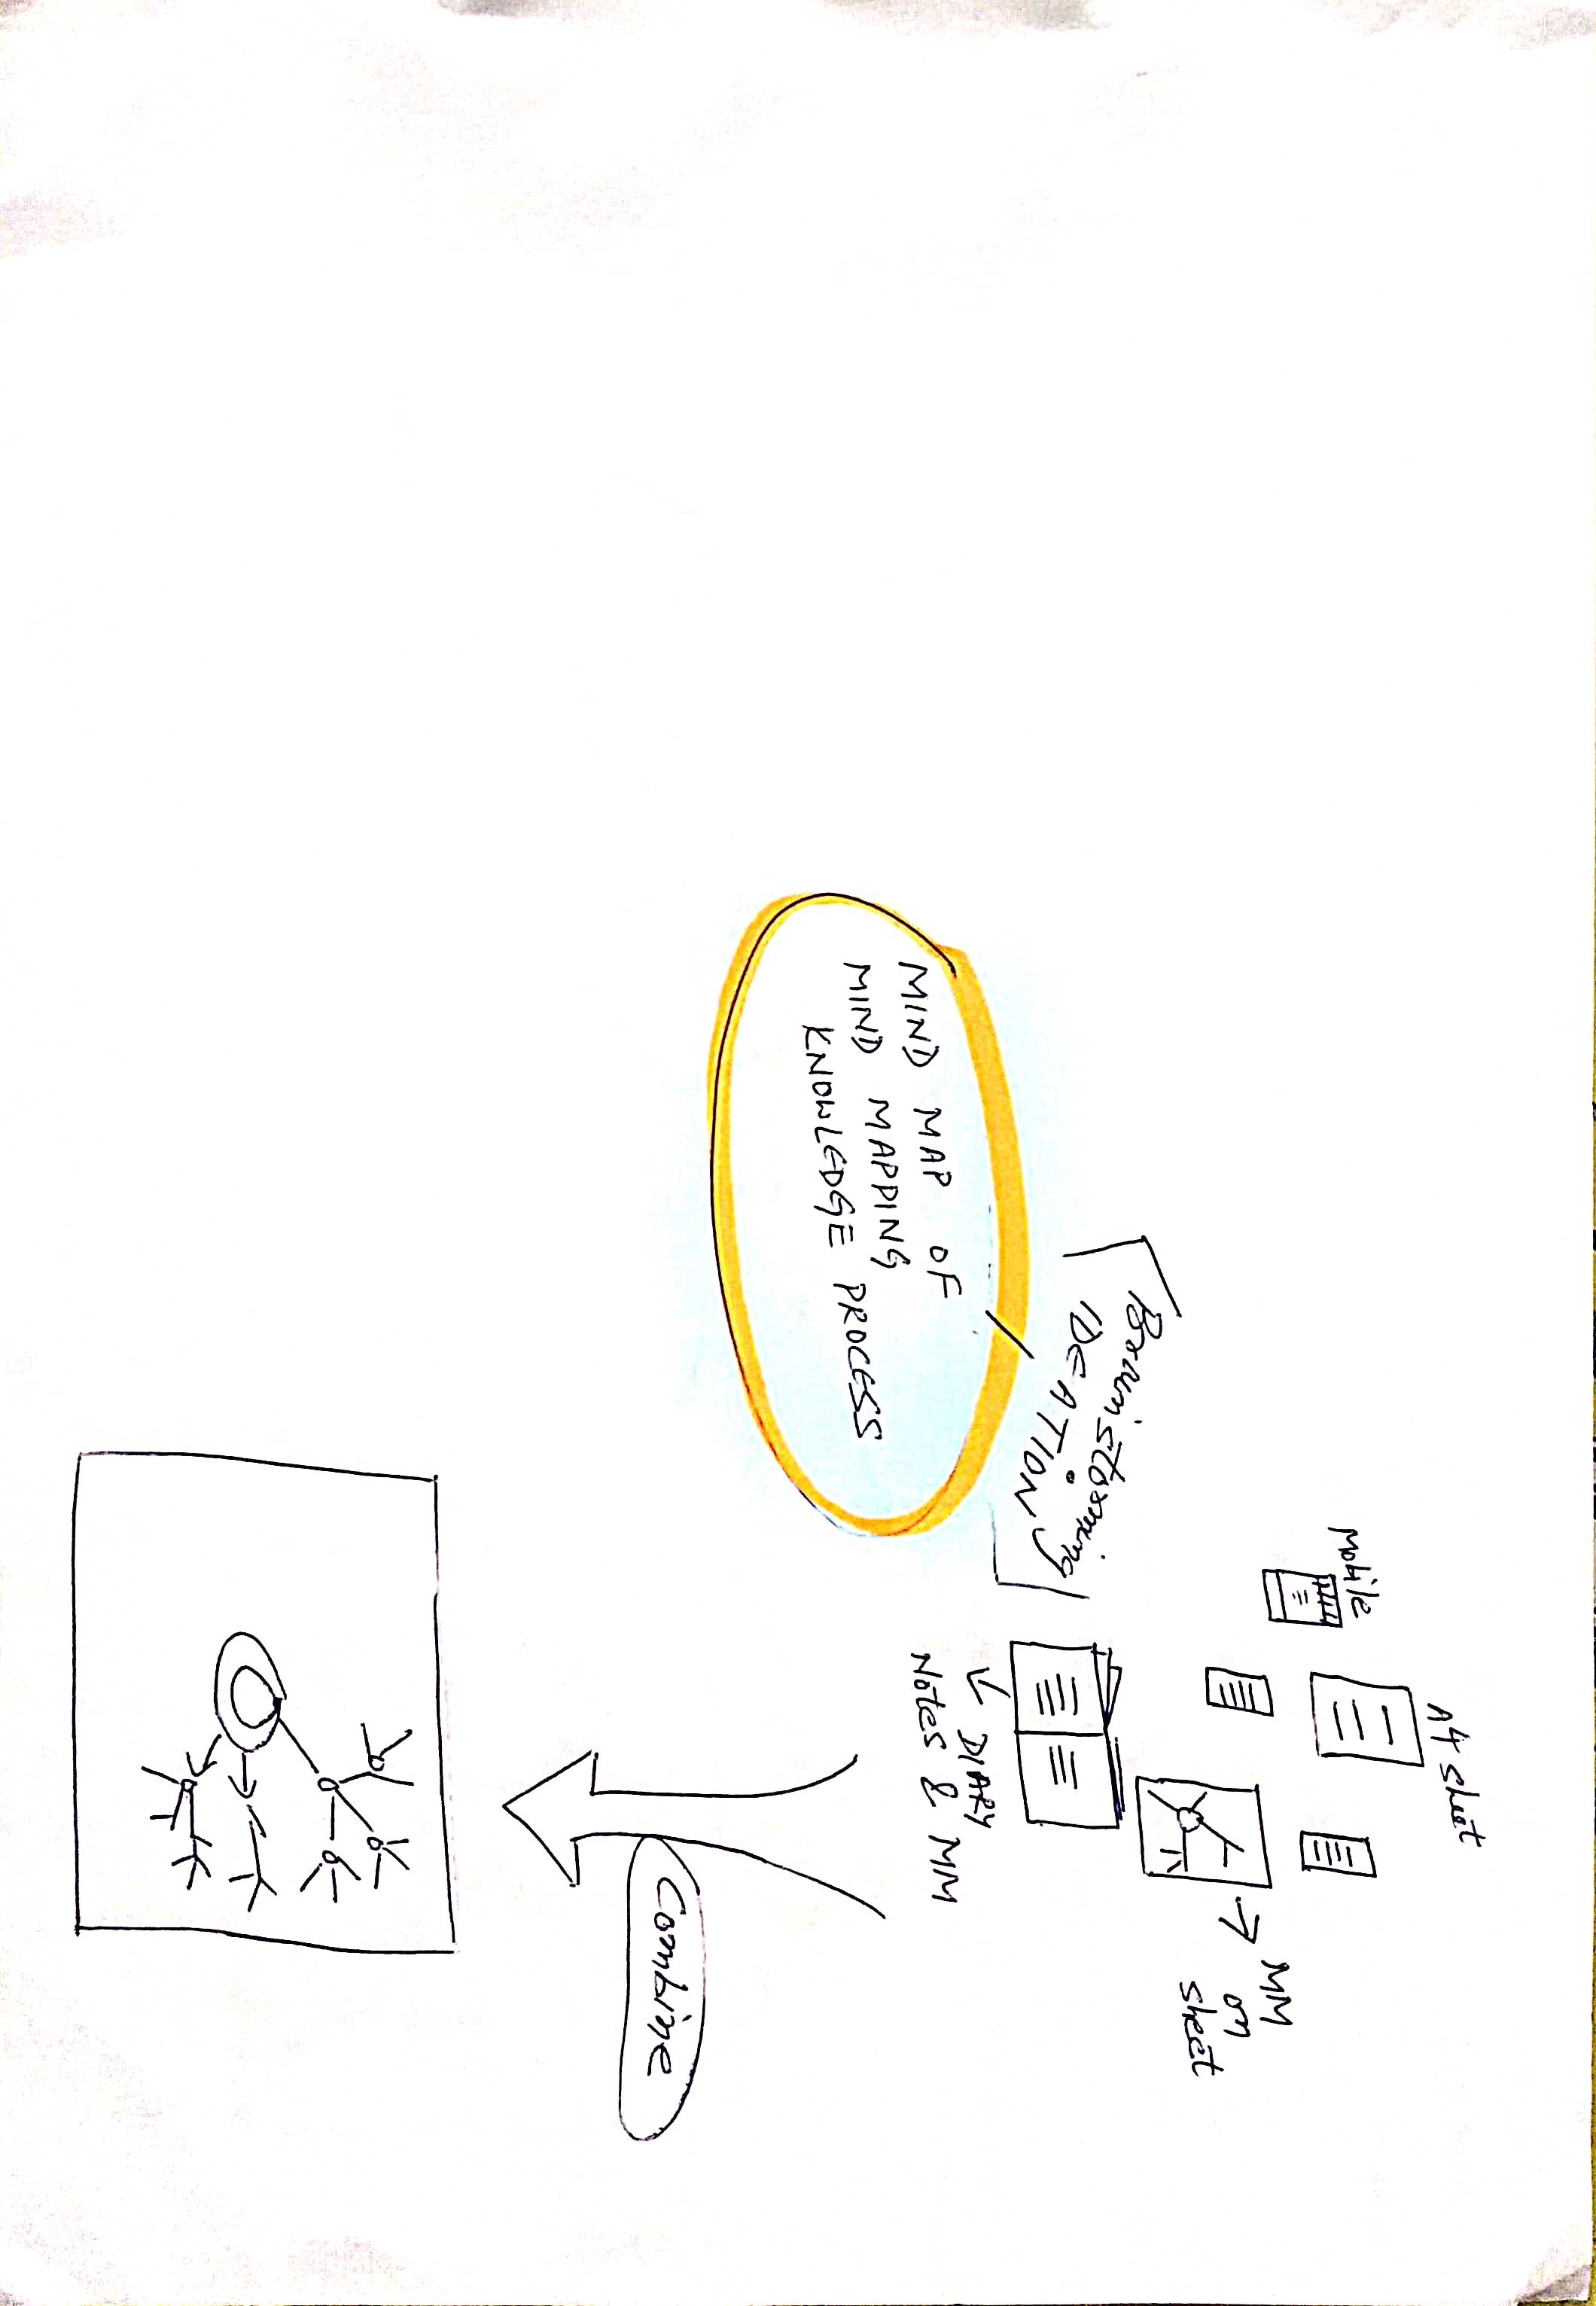 MIND MAP OF
MIND MAPPING
KNOWLEDGE PROCESS
Brainstorming
IDEATION
Mobile
A4 sheet
MM
on
sheet
DIARY
Notes & MM
Combine